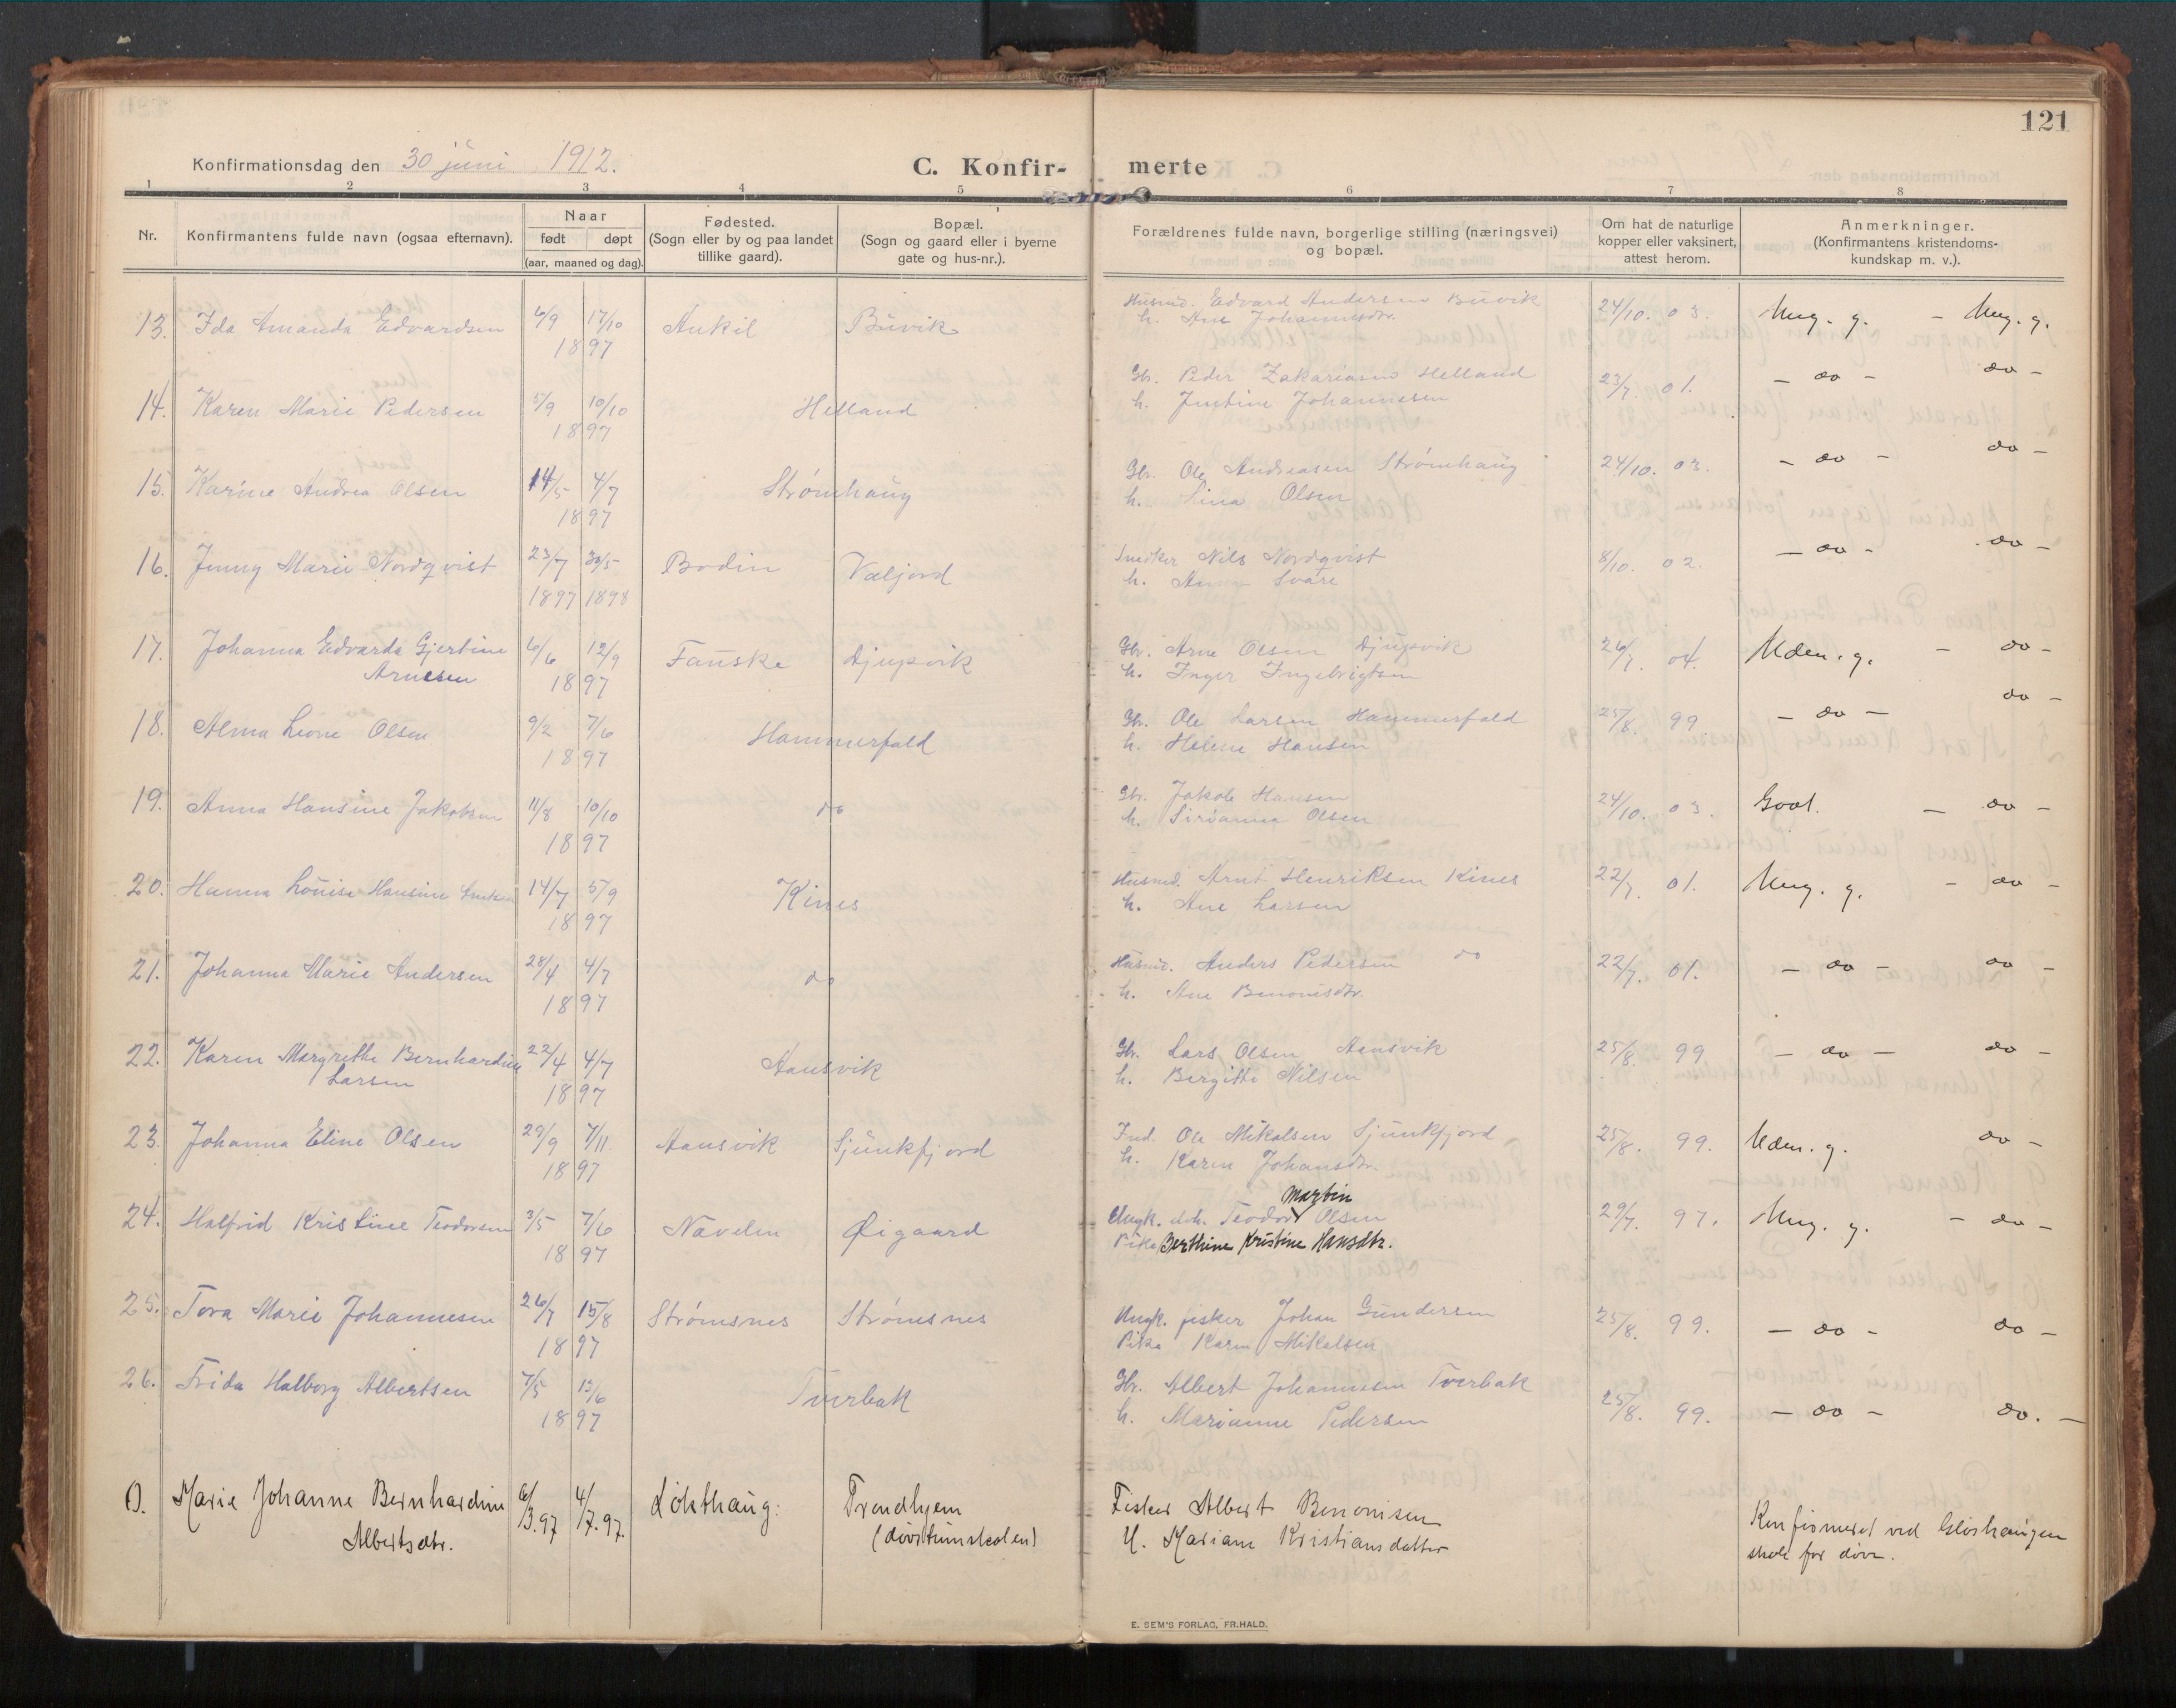 121
Konfirmationsdag den 30 juni 1912.
C. Konfir- merte
1 2 3 4 5 6 7 8
Nr.
Konfirmantens fulde navn (ogsaa efternavn).
Naar
født døpt
(aar, maaned og dag).
Fødested.
(Sogn eller by og paa landet
tillike gaard).
Bopæl.
(Sogn og gaard eller i byerne
gate og hus-nr.).
Forældrenes fulde navn, borgerlige stilling (næringsvei)
og bopæl.
Om hat de naturlige
kopper eller vaksinert,
attest herom.
Anmerkninger.
(Konfirmantens kristendoms-
kundskap m. v.).
13. Ida Amanda Edvardsen 6/9 17/10 Ankil Buvik Husmd. Edvard Andersen Buvik 24/10. 03. Meg. g. - Meg. g.
1897 h. Ane Johannesdtr.
14. Karen Marie Pedersen 5/9 10/10 Helland Gbr. Peder Zakariasen Helland 23/7. 01. - do - do -
1897 h. Justine Johannesen
15. Karine Andrea Olsen 14/5 4/7 Strømhaug Gbr. Ole Andreasen Strømhaug 24/10. 03. - do - do -
1897 h. Lina Olsen
16. Jenny Marie Nordqvist 23/7 30/5 Bodin Valjord Snedker Nils Nordqvist 8/10. 02. - do - do -
1897 1898 h. Anna Svare
17. Johanna Edvarda Gjertine 6/6 12/9 Fauske Djupvik Gbr. Arne Olsen Djupvik 26/7. 04. Uden. g. - do -
Arnesen 1897 h. Inger Ingebrigtsen
18. Alma Leone Olsen 9/2 7/6 Hammerfald Gbr. Ole Larsen Hammerfald 25/8. 99 - do - do -
1897 h. Helene Hansen
19. Anna Hansine Jakobsen 11/8 10/10 do Gbr. Jakob Hansen 24/10. 03. Godt. - do -
1897 h. Sirianna Olsen
20. Hanna Louise Hansine 14/7 5/9 Kines Husmd. Arnt Henriksen Kines 22/7. 01. Meg. g. - do -
1897 h. Ane Larsen
21. Johanna Marie Andersen 28/4 4/7 do Husmd. Anders Pedersen do 22/7. 01. - do - do -
1897 h. Ane Benonisdtr.
22. Karen Margrethe Bernhardine 22/4 4/7 Aansvik Gbr. Lars Olsen Aansvik 25/8. 99 - do - do -
Larsen 1897 h. Bergitte Nilsen
23. Johanna Eline Olsen 29/9 7/11. Aansvik Sjunkfjord Ind. Ole Mikalsen Sjunkfjord 25/8. 99. Uden. g. do -
1897 h. Karen Johansdtr.
Martin
24. Halfrid Kristine Teodorsen 3/5 7/6 Navelen Øigaard Ungk. Teodor Olsen 29/7. 97. Meg. g. - do -
1897 Pike Berthine Kristine Hansdtr.
25. Tora Marie Johannesen 26/7 15/8 Strømsnes Strømsnes Ungk. fisker Johan Gundersen 25/8. 99. - do - do -
1897 Pike Karen Mikalsen
26. Frida Halborg Albertsen 7/5 13/6 Tverbak Gbr. Albert Johannesen Tverbak 25/8. 99. - do - do. -
1897 h. Marianne Pedersen
Marie Johanne Bernhardine 6/3.97 4/7.97. Løkthaug: Trondhjem Fisker Albert Benonisen Konfirmeret ved Gløshaugen
Albertsdtr. H. Mariane Kristiansdatter skole for døve.
E. SEM'S FORLAG, FR.HALD.